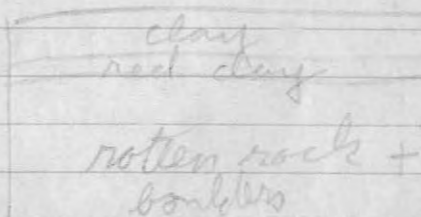 clay
red clay
rotten rock +
boulders